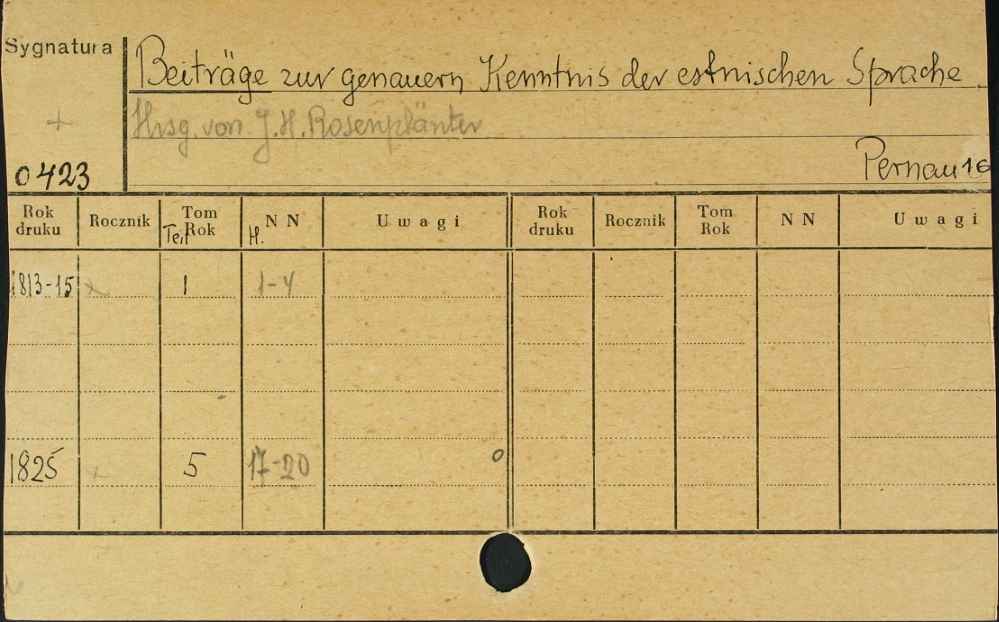 Sygnatura
Beiträge zur genauern Kenntnis der estnischen Sprache
+ Hrsg. von J. H. Rosenplänter
0423 Pernau 16
Rok druku Rocznik Tom Rok Teil N N H. Uwagi Rok druku Rocznik Tom Rok N N Uwagi
1813-15 1 1-4
1825 5 17-20